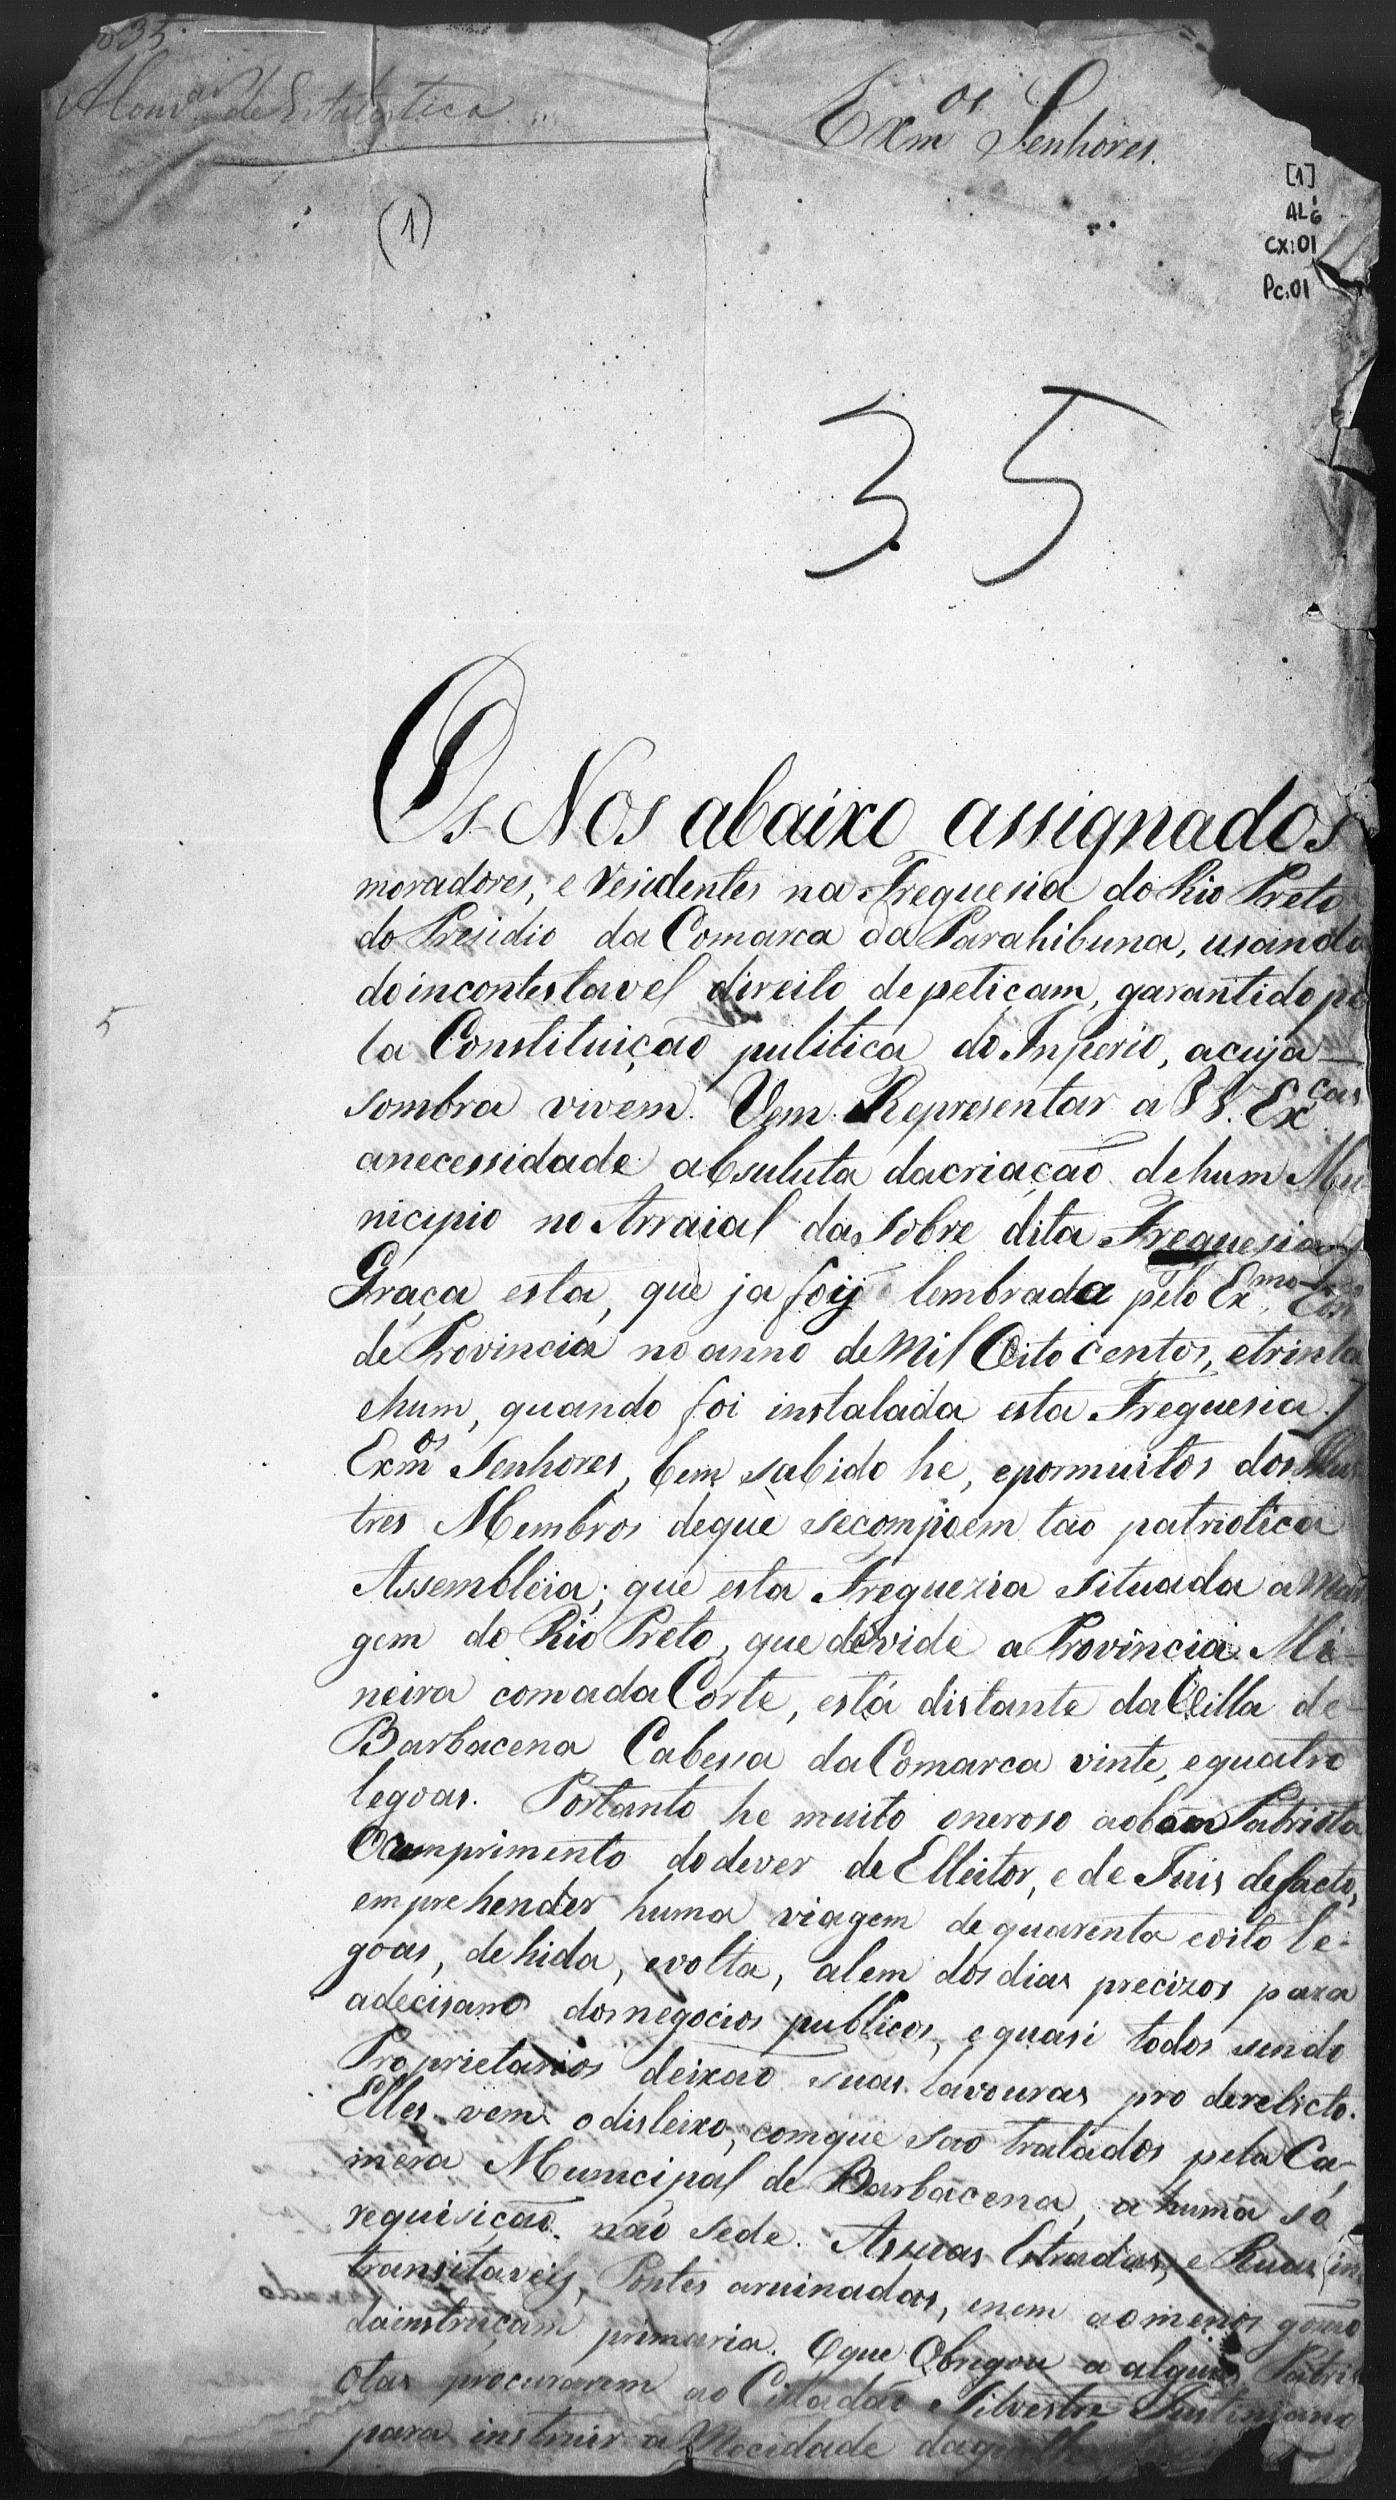 35
de Estatistica
Exm.os Senhores.
[1]
AL6
CX:01
Pc:01
(1)
35
Os Nos abaixo assignados
moradores, e residentes na Freguesia do Rio Preto
do Presidio da Comarca da Parahibuna, usando
do incontestavel direito de peticam, garantido pe
la Constituição pulitica do Inperio, acuja
sombra vivem. Vem Representar a VV. Ex.cas
anecessidade absuluta dacriação dehum Mu
nicipio no Arraial da sobre dita Freguesia
Graça esta, que ja foij lembrada pelo Ex.mo
de Provincia no anno de Mil Oito centos, etrinta
ehum, quando foi instalada esta Freguesia.
Exm.os Senhores, bem sabido he, epormuitos dos Illus
tres Membros deque secompoem tao patriotica
Assembleia; que esta Freguezia situada a mar
gem do Rio Preto, que devide a Provincia Mi-
neira comada Corte, está distante da Villa de
Barbacena Cabessa da Comarca vinte, equatro
legoas. Portanto he muito oneroso aobom Patriota
Ocumprimento dodever de Elleitor, e de Juis defacto,
emprehender huma viagem de quarenta eoito le-
goas, de hida, evolta, alem dos dias precizos para
adecisam dosnegocios publicos, e quasi todos sendo
Proprietarios deixao suas lavouras pro derelicto.
Elles vem odisleixo, comque sao tratados pela Ca-
mera Municipal de Barbacena, a huma só
requisiçao não sede. Assuas Estradas, e Ruas in
transitaveis, Pontes aruinadas, enem aomenos gozao
dainstruçam primaria. Oque Obrigou a alguns Patri
otas procurarem ao Cidadão Silvestre Justiniano
para instruir a Mocidade
5